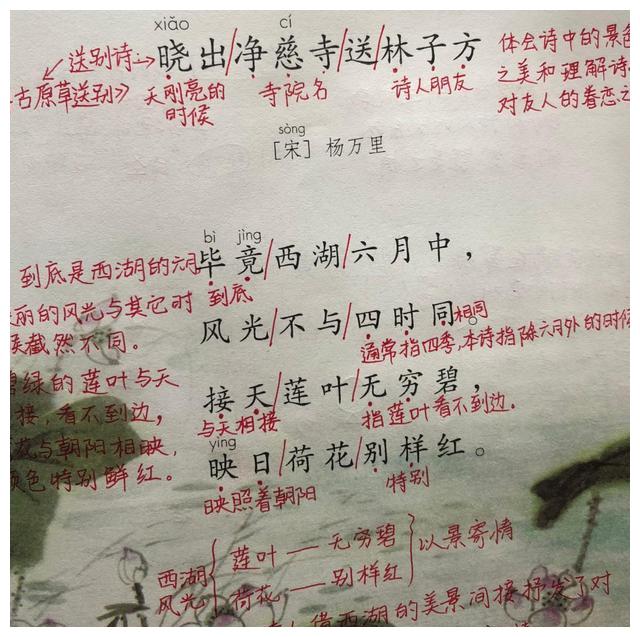 xiǎo cí
送别诗→晓出/净慈寺/送/林子方
古原草送别》 天刚亮的时候 寺院名 诗人朋友
体会诗中的景色
之美和理解诗
对友人的眷恋之
sòng
[宋] 杨万里
bì jìng
毕竟/西湖/六月中，
到底
风光/不与/四时同。
相同
通常指四季，本诗指除六月外的时候
接天/莲叶/无穷碧，
与天相接 指莲叶看不到边。
yìng
映日/荷花/别样红。
映照着朝阳 特别
到底是西湖的六月
丽的风光与其它时
候截然不同。
碧绿的莲叶与天
接，看不到边，
花与朝阳相映，
颜色特别鲜红。
西湖风光
莲叶——无穷碧
荷花——别样红
以景寄情
借西湖的美景间接抒发了对